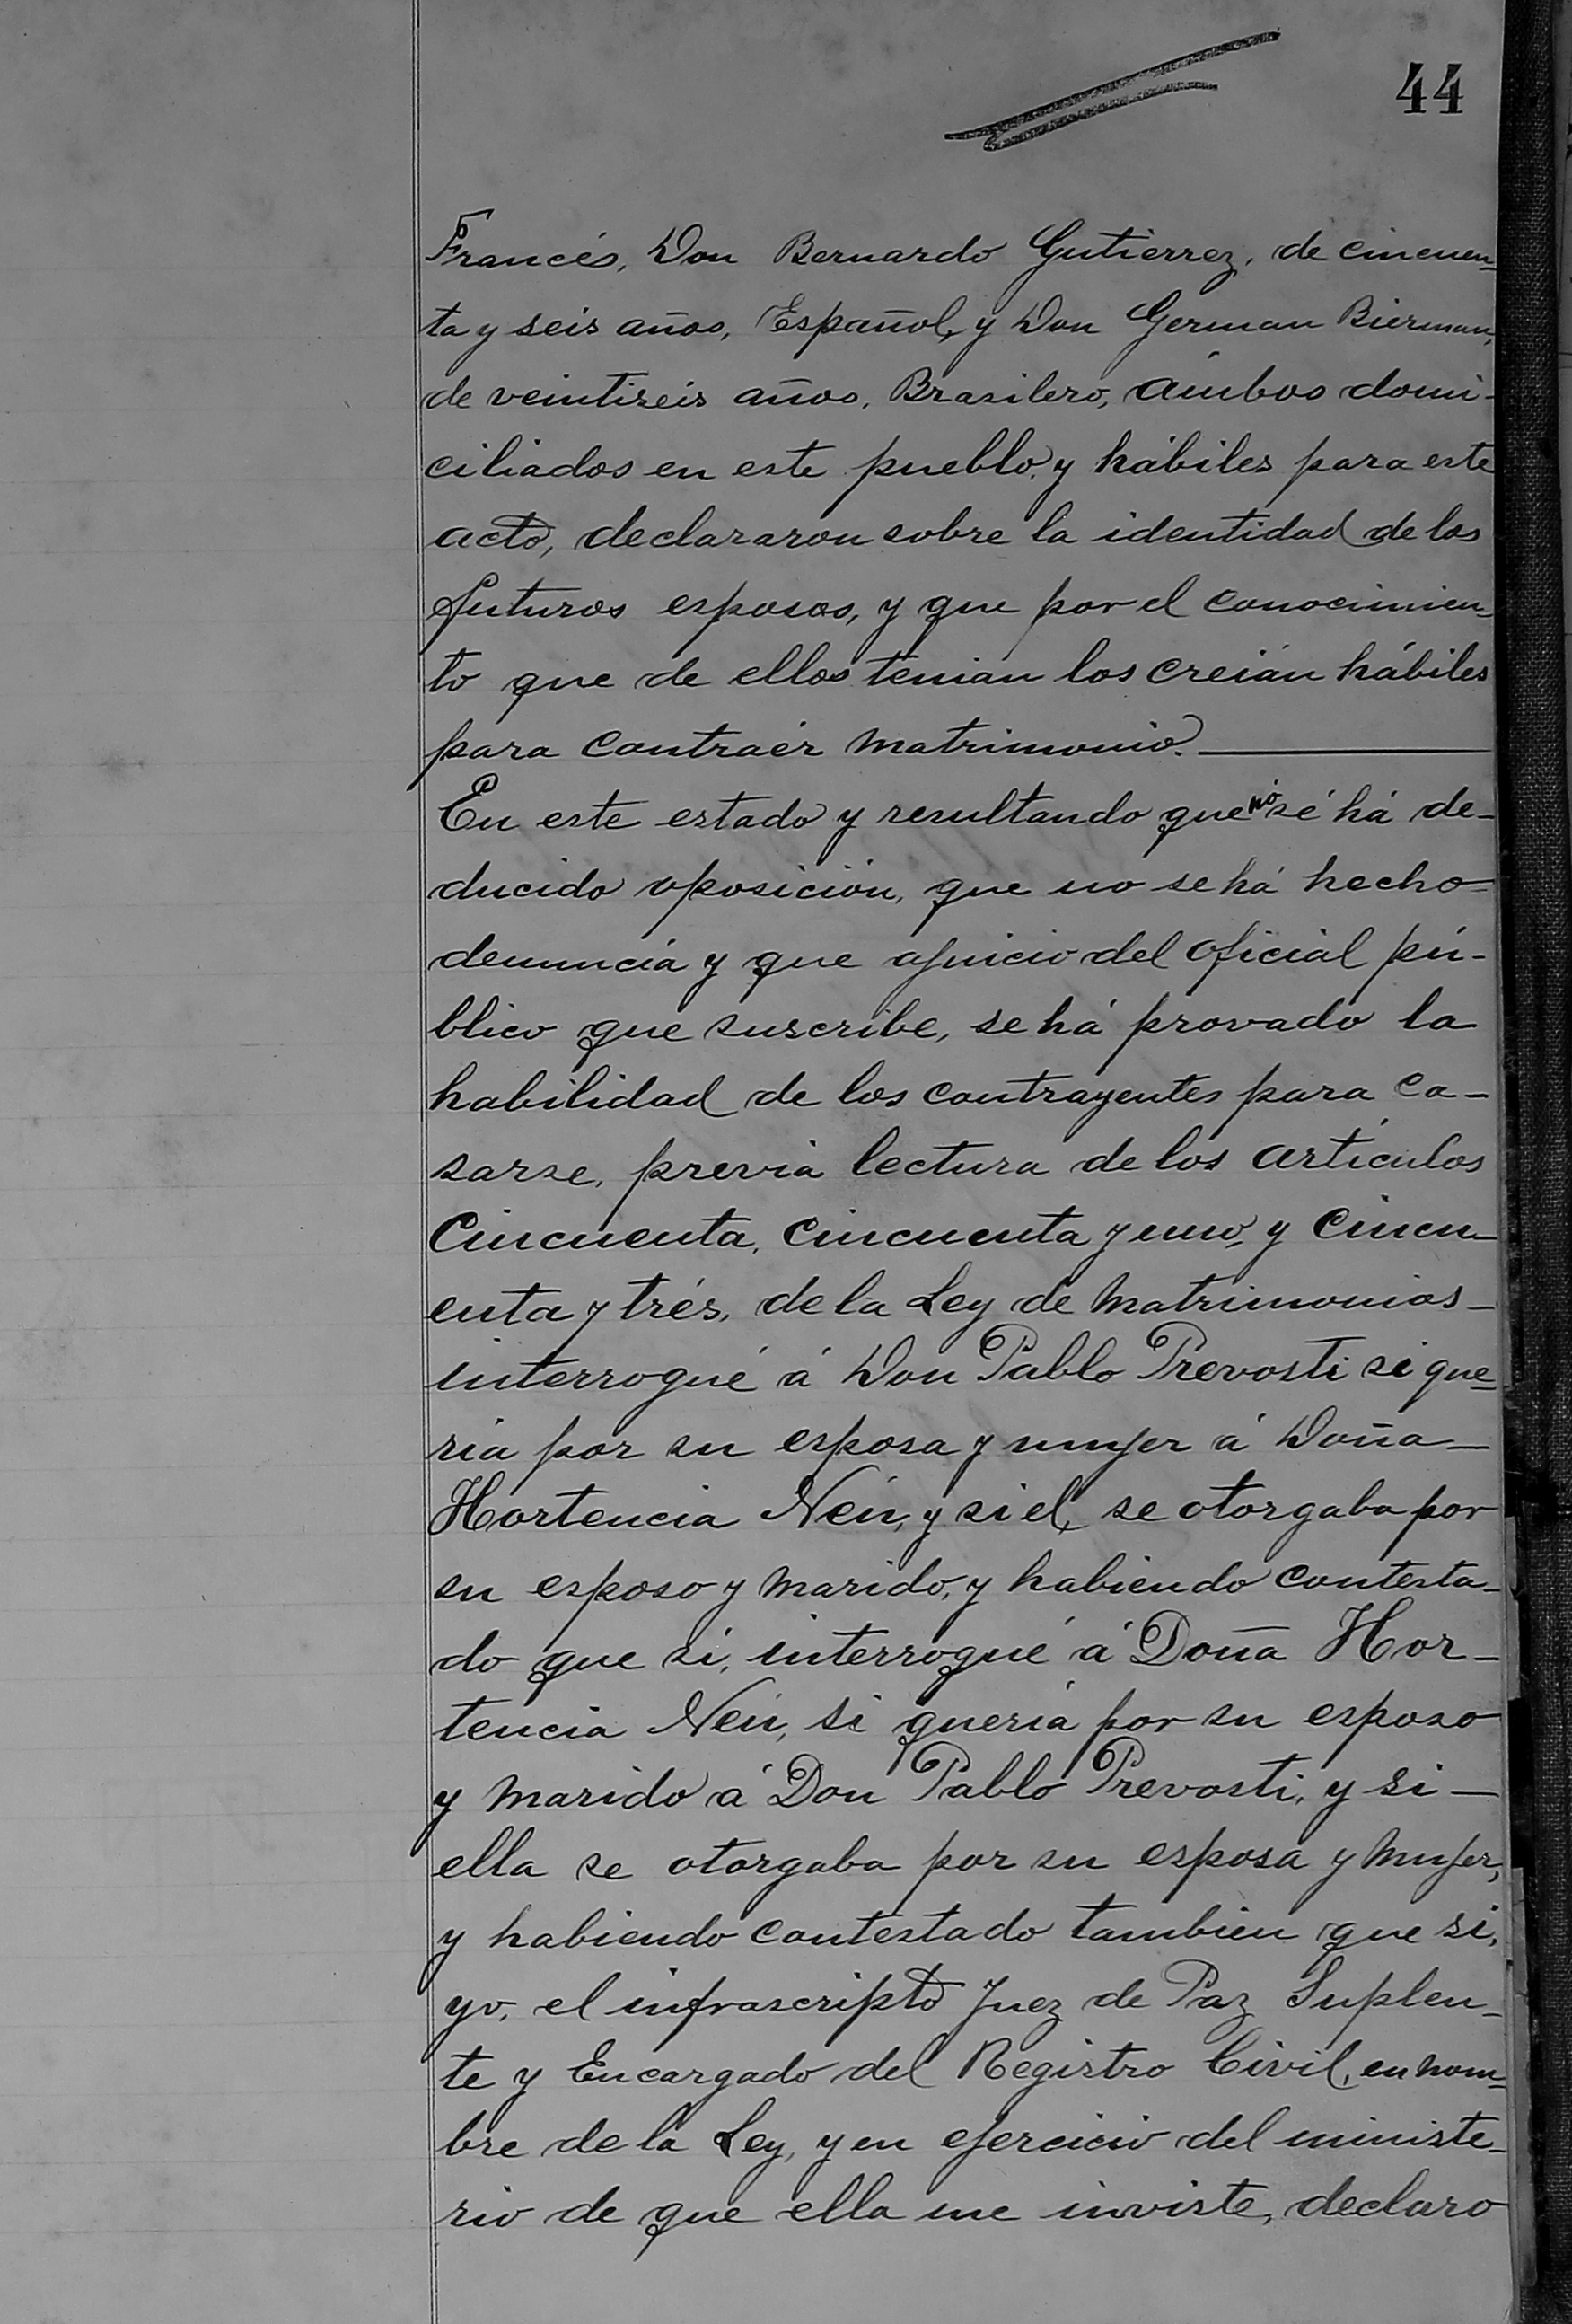 44
Francés, Don Bernardo Gutierrez, de cincuen-
ta y seis años, Español, y Don German Bierman,
de veintiseis años, Brasilero, ámbos domi-
ciliados en este pueblo, y hábiles para este
acto, declararon sobre la identidad de los
futuros esposos, y que por el conocimien-
to que de ellos tenian los creián hábiles
para contraér matrimonio.
En este estado y resultando que nó sé há de-
ducido oposición, que no se há hecho
denuncia y que ajuicio del oficial pú-
blico que suscribe, se há provado la
habilidad de los contrayentes para ca-
sarse, previa lectura de los artículos
Cincuenta, cincuenta y uno, y cincu-
enta y trés, de la Ley de Matrimonios
interrogué á Don Pablo Prevosti si que-
ria por su esposa y mujer á Doña
Hortencia Neú, y si el, se otorgaba por
su esposo y marido, y habiendo contesta-
do que si, interrogué á Doña Hor-
tencia Neú, si queria por su esposo
y marido á Don Pablo Prevosti, y si
ella se otorgaba por su esposa y mujer,
y habiendo contestado tambien que si,
yo, el infrascripto Juez de Paz Suplen-
te y Encargado del Registro Civil, en nom-
bre de la Ley, y en ejercicio del ministe-
rio de que ella me inviste, declaro